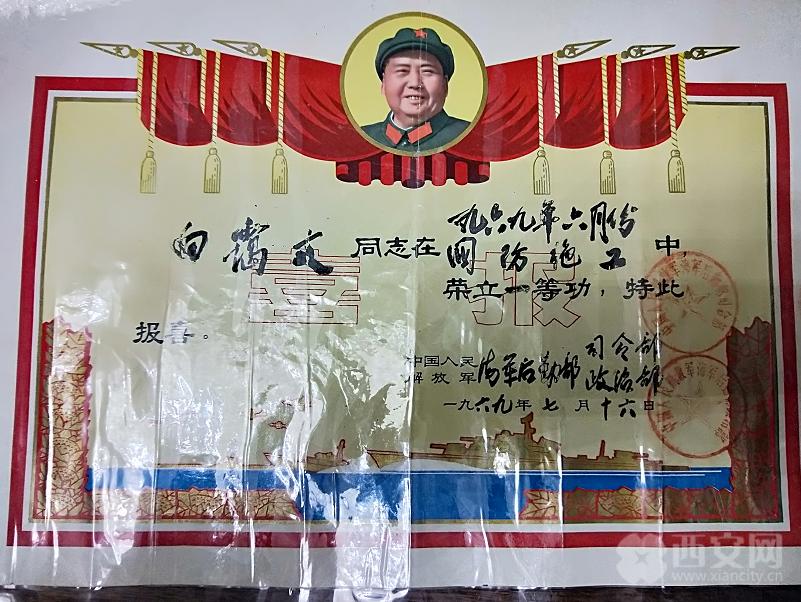 一九六九年六月份
白嵩文 同志在 国防施工 中，
荣立一等功，特此
报喜。
喜报
中国人民解放军 海军后勤部 司令部 政治部
一九六九年七月十六日
西安网
www.xiancity.cn